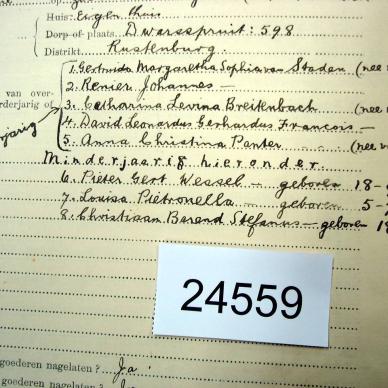 Huis: Eigen Huis
Dorp of plaats. Dwarsspruit: 598
Distrikt. Rustenburg.
1. Gertruida Margaretha Sophia van Staden (nee
van over- 2. Renier Johannes -
derjarig of 3. Catharina Levina Breitenbach (nee
jarig 4. David Leonardus Gerhardus Francois -
5. Anna Christina Panter (nee
Minderjaarig hieronder.
6. Pieter Gert Wessel - geboren 18-
7. Louisa Pietronella - geboren 5-
8. Christiaan Barend Stefanus - geboren 18
24559
goederen nagelaten? Ja
goederen nagelaten?